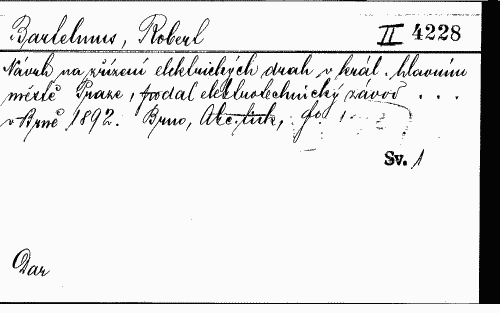 Bartelmus, Robert II 4228
Návrh na zřízení elektrických drah v král. hlavním
městě Praze, podal elektrotechnický závod . . .
v Brně 1892. Brno, Akc. tisk, fo.
Sv. 1
Dar